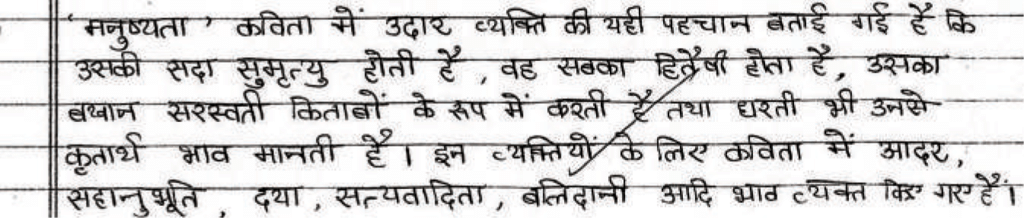 'मनुष्यता' कविता में उदार व्यक्ति की यही पहचान बताई गई है कि
उसकी सदा सुमृत्यु होती है, वह सबका हितैषी होता है, उसका
बखान सरस्वती किताबों के रूप में करती है तथा धरती भी उनसे
कृतार्थ भाव मानती है। इन व्यक्तियों के लिए कविता में आदर,
सहानुभूति, दया, सत्यवादिता, बलिदानी आदि भाव व्यक्त किए गए हैं।